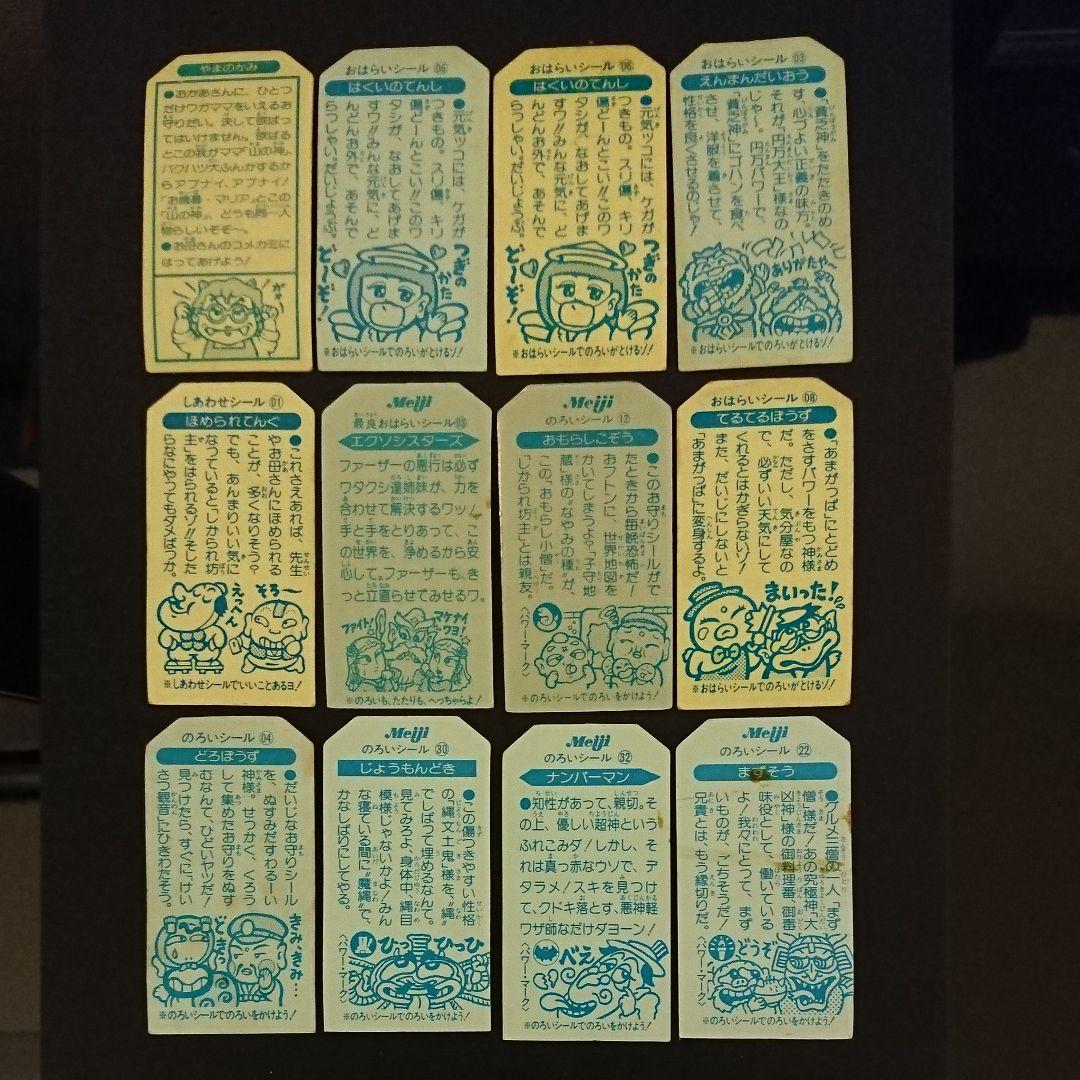 やまのかみ
●おかあさんに、ひとつ
だけワガママをいえるお
守りだい。決して欲ばっ
てはいけません。欲ばる
とこの我がママ「山の神」、
バクハツ大ふんかするか
らアブナイ、アブナイ!
「お歳暮・マリア」とこの
「山の神」、どうも同一人
物らしいぞぞ〜。
●お母さんのコメカミに
はってあげよう!
おはらいシール 06
はくいのてんし
●元気ッコには、ケガが
つきもの。スリ傷、キリ
傷どーんとこい!!このワ
タシが、なおしてあげま
すワ!!みんな元気に、ど
んどんお外で、あそんで
らっしゃい。だいじょうぶ。
つぎの
かた
ど〜ぞ!
※おはらいシールでのろいがとけるゾ!
おはらいシール 06
はくいのてんし
●元気ッコには、ケガが
つきもの。スリ傷、キリ
傷どーんとこい!!このワ
タシが、なおしてあげま
すワ!!みんな元気に、ど
んどんお外で、あそんで
らっしゃい。だいじょうぶ。
つぎの
かた
ど〜ぞ!
※おはらいシールでのろいがとけるゾ!
おはらいシール 03
えんまんだいおう
●「貧乏神」をたたきのめ
す、心づよい正義の味方。
それが、「円万大王」様なの
じゃ〜。円万パワーで、
「貧乏神」にゴハンを食べ
させ、洋服を着させて、
性格を良くさせるのじゃ!
ありがたや〜
※おはらいシールでのろいがとけるゾ!
しあわせシール 01
ほめられてんぐ
●これさえあれば、先生
やお母さんにほめられる
ことが、多くなりそう?
でも、あんまりいい気に
なっていると「しかられ坊
主」をはられるゾ!!そした
らなにやってもダメばっか。
えっへん
そろ〜
※しあわせシールでいいことあるヨ!
Meiji
最良おはらいシール 03
エクソシスターズ
ファーザーの悪行は必ず
ワタクシ達姉妹が、力を
合わせて解決するワッ!
手と手をとりあって、こ
の世界を、浄めるから安
心して。ファーザーも、き
っと立直らせてみせるワ。
ファイト!
マケナイ
ワヨ!
※のろいも、たたりも、へっちゃらよ!
Meiji
のろいシール 12
おもらしこぞう
●このお守りシールがで
たときから毎晩恐怖だ!
おフトンに、世界地図を
かいてしまうよ?「子守地
蔵」様の〝なやみの種〟が、
この、「おもらし小僧」だ。
「しかられ坊主」とは親友。
〈パワー・マーク〉
※のろいシールでのろいをかけよう!
おはらいシール 08
てるてるぼうず
●「あまがっぱ」にとどめ
をさすパワーをもつ神様
だ。ただし、気分屋なの
で、必ずいい天気にして
くれるとはかぎらない!
また、だいじにしないと
「あまがっぱ」に変身するよ。
まいった!
※おはらいシールでのろいがとけるゾ!
のろいシール 04
どろぼうず
●だいじなお守りシール
を、ぬすみだすわるーい
神様。せっかく、くろう
して集めたお守りをぬす
むなんて、ひどいヤツだ!
見つけたら、すぐに「けい
さつ観音」にひきわたそう。
きみ、きみ…
どきっ
※のろいシールでのろいをかけよう!
Meiji
のろいシール 30
じょうもんどき
●この傷つきやすい性格
の「縄文土鬼」様を、〝縄〟
でしばって埋めるなんて。
見てみろよ、身体中、縄目
模様じゃないかよ!みん
な寝ている間に〝魔縄〟で、
かなしばりにしてやる。
〈パワー・マーク〉
ひっひっひっひ
※のろいシールでのろいをかけよう!
Meiji
のろいシール 32
ナンパーマン
●知性があって、親切。そ
の上、優しい超神という
ふれこみダ!しかし、そ
れは真っ赤なウソで、デ
タラメ!スキを見つけ
て、クドキ落とす、悪神軽
ワザ師なだけダヨーン!
〈パワー・マーク〉
べえ
※のろいシールでのろいをかけよう!
Meiji
のろいシール 22
まずそう
●グルメ三僧の一人「まず
僧」様だ!あの究極神「大
凶神」様の御料理番、御毒
味役として、働いている
よ!我々にとって、まず
いものが、ごちそうだ!
兄貴とは、もう縁切りだ。
〈パワー・マーク〉
どうぞ
※のろいシールでのろいをかけよう!